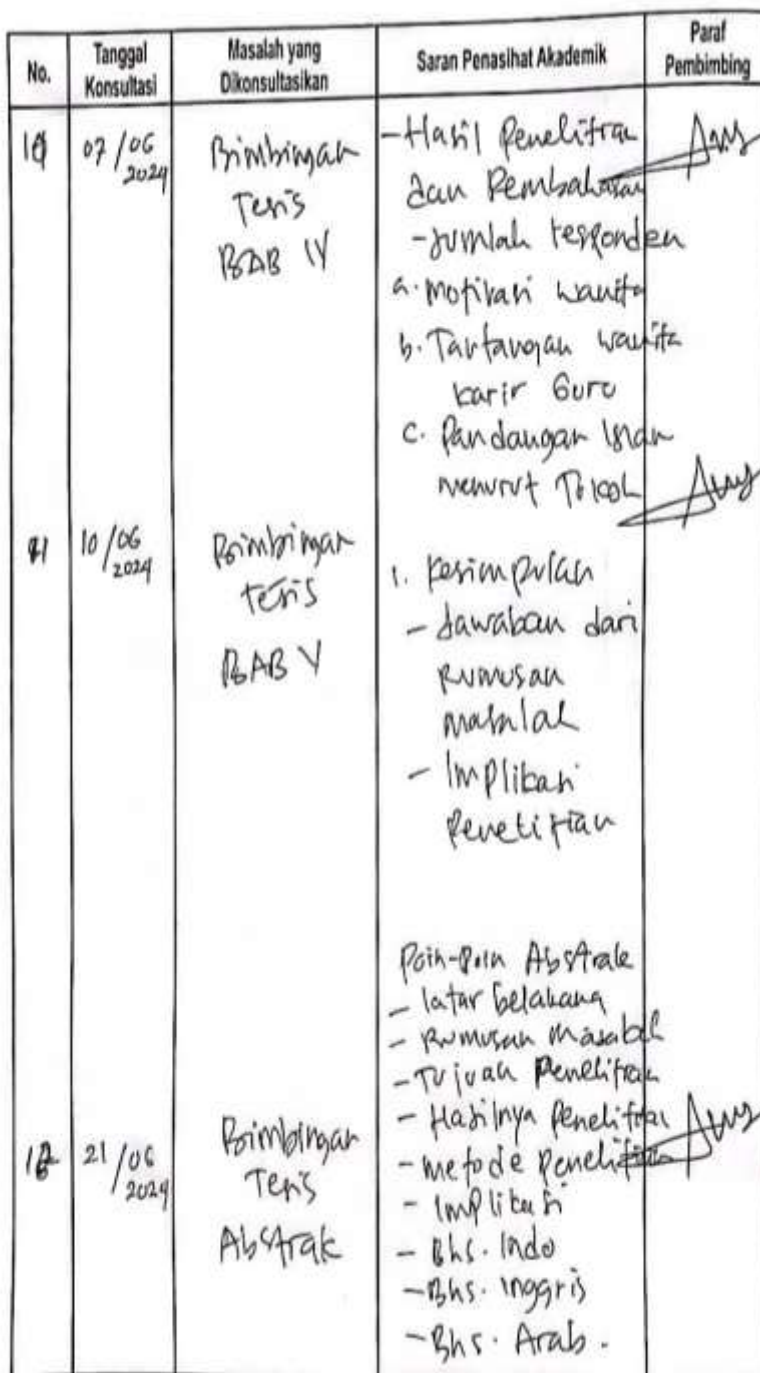 No.
Tanggal
Konsultasi
Masalah yang
Dikonsultasikan
Saran Penasihat Akademik
Paraf
Pembimbing
10
07/06
2024
Bimbingan
Tesis
BAB IV
- Hasil Penelitian
dan Pembahasan
- Jumlah responden
a. Motivasi wanita
b. Tantangan wanita
karir Guru
c. Pandangan Islam
menurut Tokoh
11
10/06
2024
Bimbingan
Tesis
BAB V
1. Kesimpulan
- Jawaban dari
Rumusan
masalah
- Implikasi
Penelitian
12
21/06
2024
Bimbingan
Tesis
Abstrak
Poin-Poin Abstrak
- latar belakang
- Rumusan Masalah
- Tujuan Penelitian
- Hasilnya Penelitian
- metode Penelitian
- Implikasi
- Bhs. Indo
- Bhs. Inggris
- Bhs. Arab.